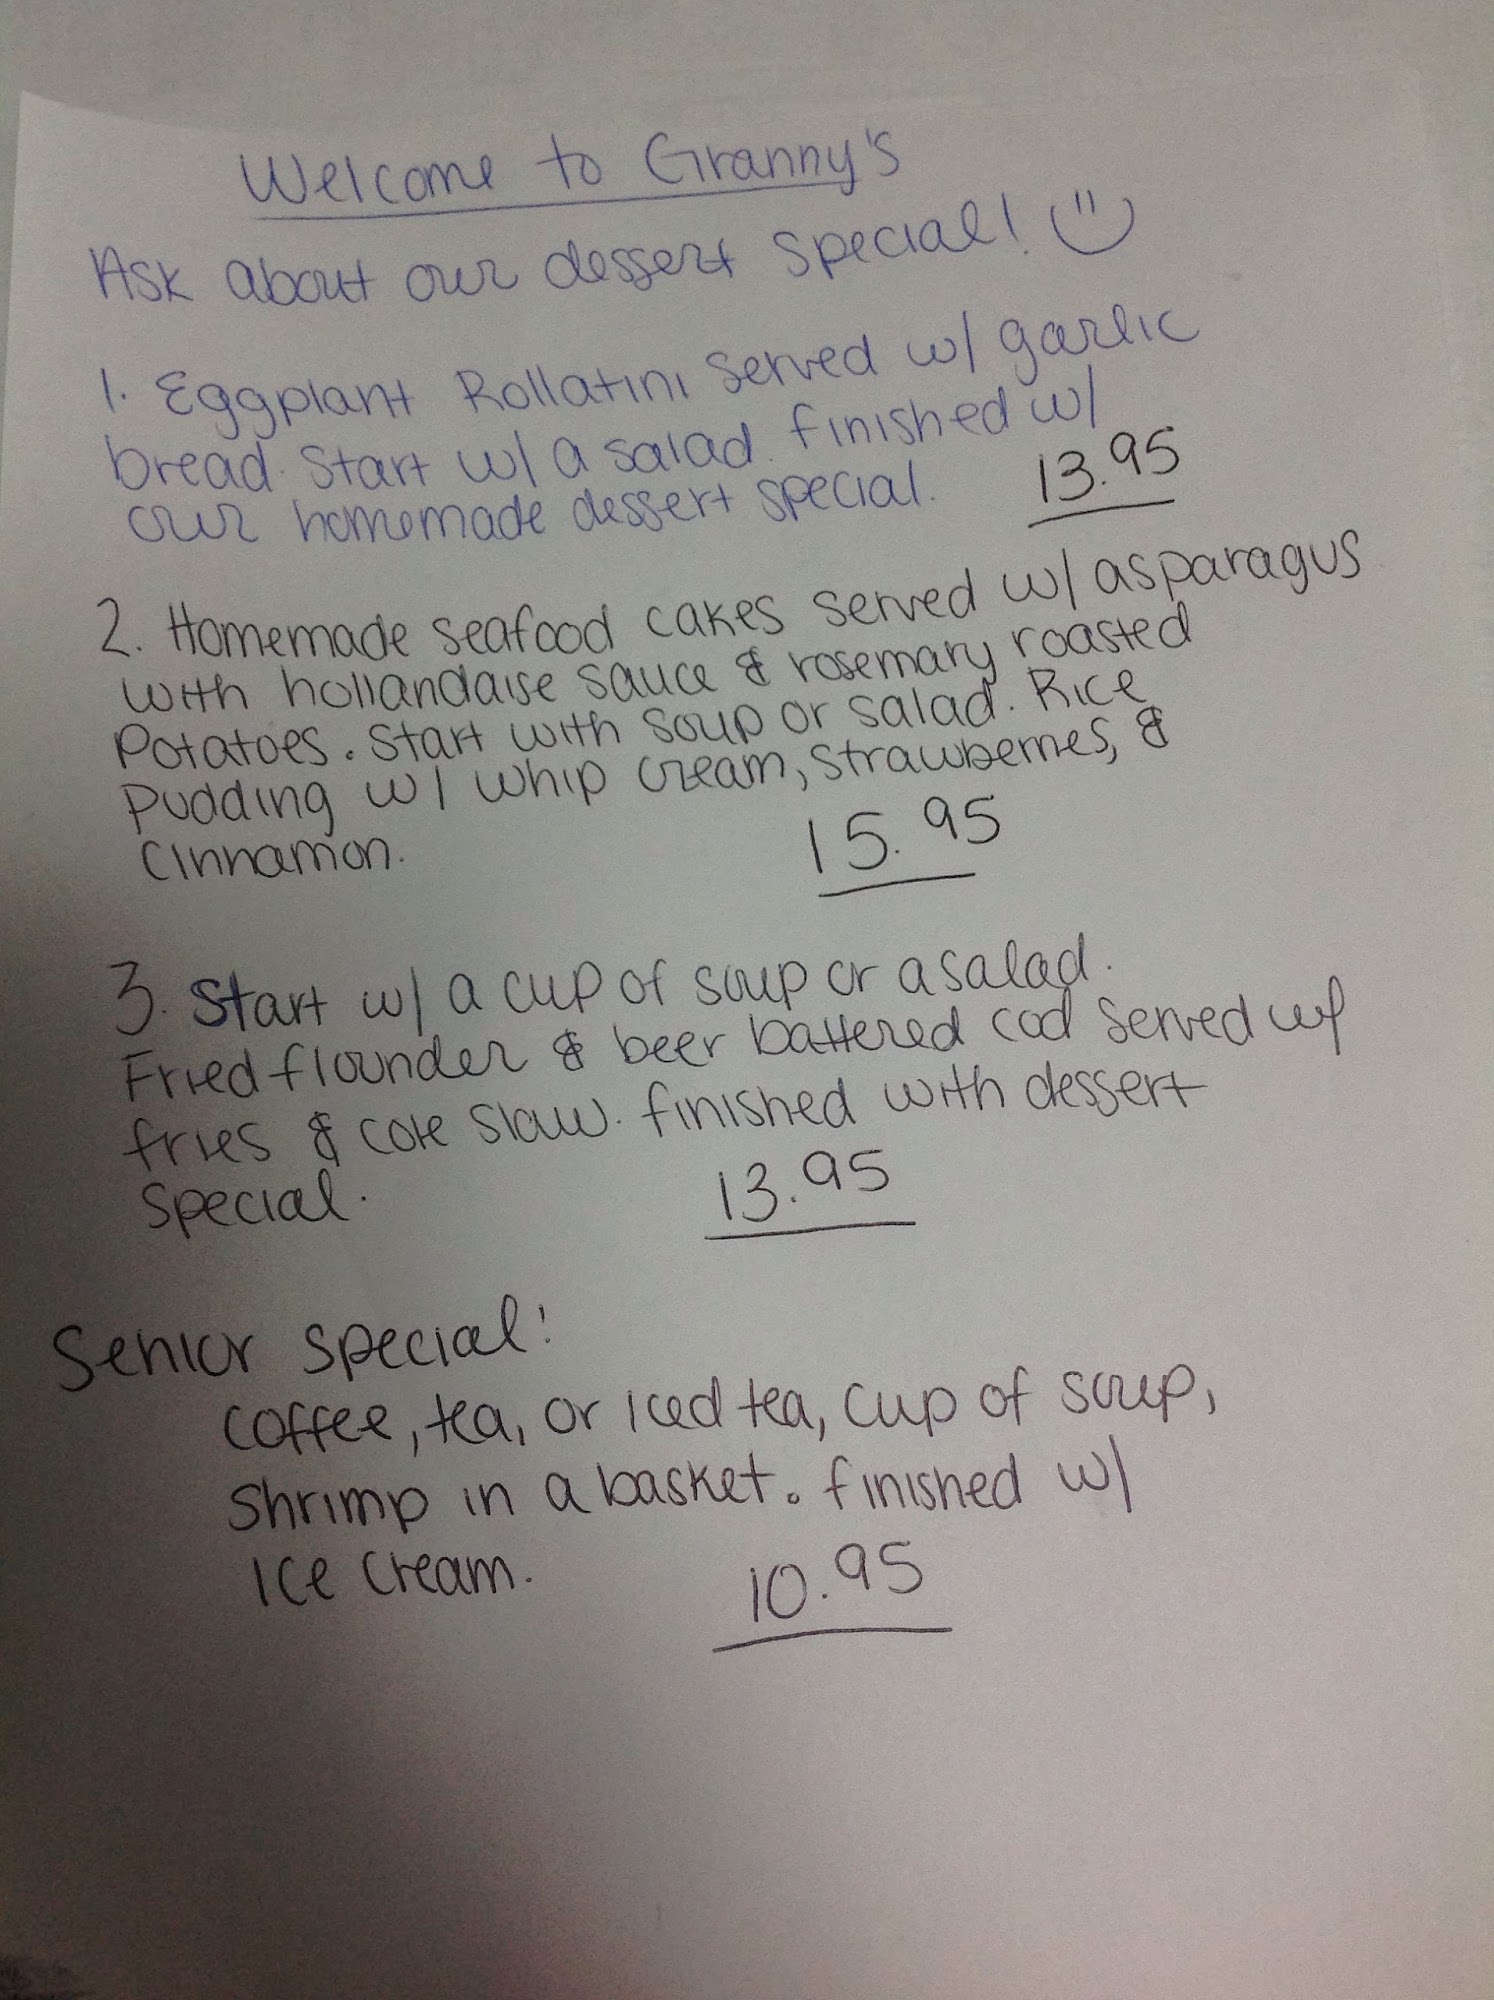 Welcome to Granny's
Ask about our dessert special! 
1. Eggplant Rollatini served w/ garlic
bread. Start w/ a salad. finished w/
our homemade dessert special. 13.95
2. Homemade seafood cakes served w/ asparagus
with hollandaise sauce & rosemary roasted
Potatoes. Start with soup or salad. Rice
Pudding w/ whip cream, strawberries, &
Cinnamon. 15.95
3. Start w/ a cup of soup or a salad.
Fried flounder & beer battered cod served w/
fries & cole slaw. finished with dessert
special. 13.95
Senior special!
Coffee, tea, or iced tea, cup of soup,
shrimp in a basket. finished w/
Ice Cream. 10.95